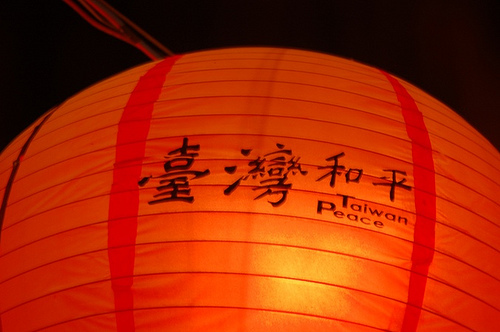 臺灣和平
Taiwan
Peace